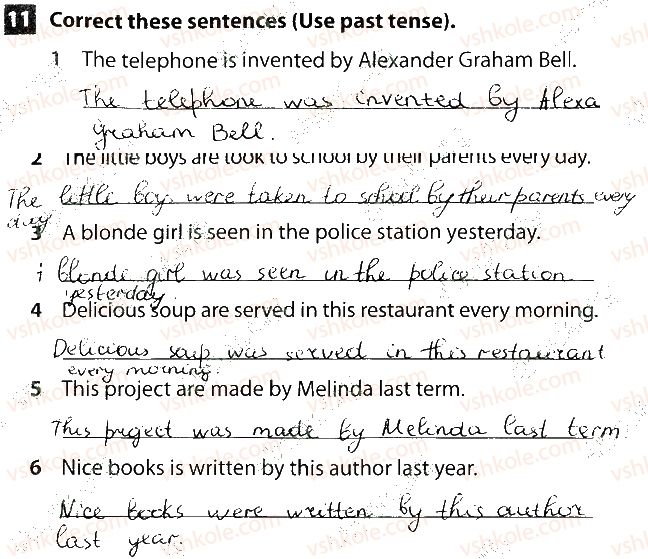 11 Correct these sentences (Use past tense).
1 The telephone is invented by Alexander Graham Bell.
The telephone was invented by Alexa
Graham Bell.
2 The little boys are took to school by their parents every day.
The little boys were taken to school by their parents every
day
3 A blonde girl is seen in the police station yesterday.
blonde girl was seen in the police station
yesterday.
4 Delicious soup are served in this restaurant every morning.
Delicious soup was served in this restaurant
every morning.
5 This project are made by Melinda last term.
This project was made by Melinda last term.
6 Nice books is written by this author last year.
Nice books were written by this author
last year.